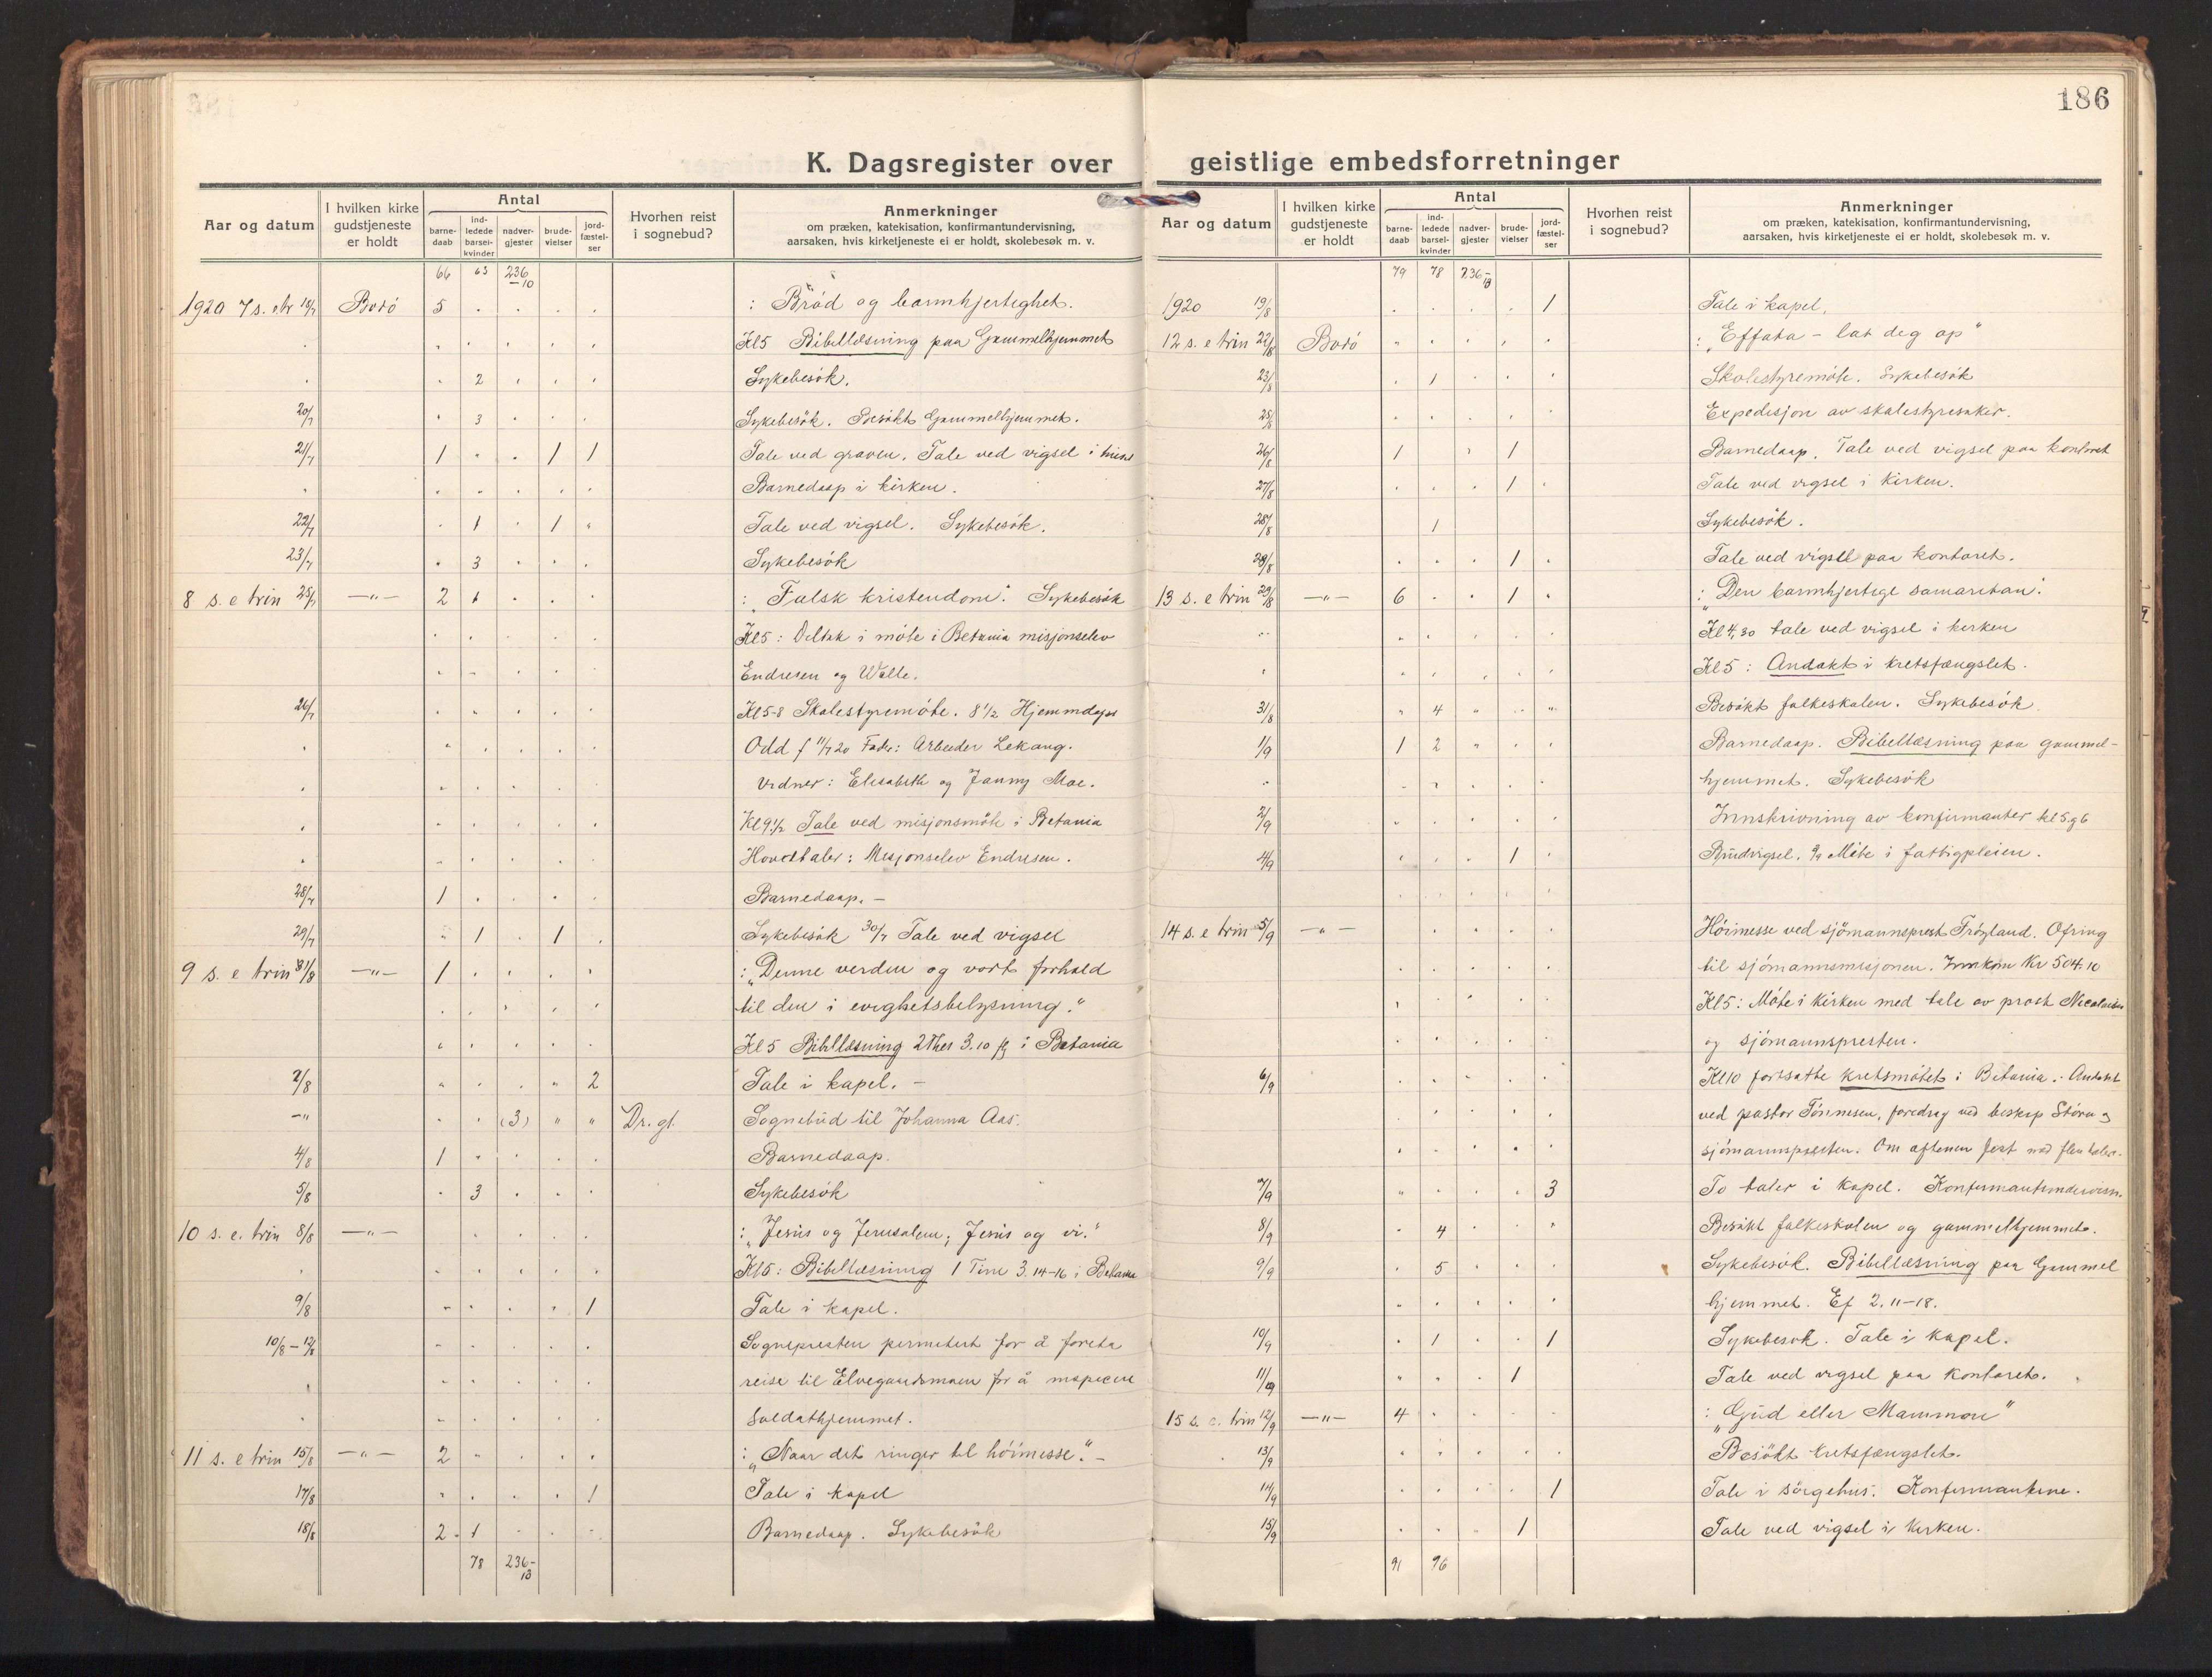 186
K. Dagsregister over
Aar og datum | I hvilken kirke gudstjeneste er holdt | Antal | barne-daab | ind-ledede barsel-kvinder | nadver-gjester | brude-vielser | jord-fæstel-ser | Hvorhen reist i sognebud? | Anmerkninger om præken, katekisation, konfirmantundervisning, aarsaken, hvis kirketjeneste ei er holdt, skolebesøk m. v.
66 63 236-10
1920 7 s. e tr 18/7 Bodö 5 : Bröd og barmhjertighet.
Kl 5 Bibellæsning paa Gammelhjemmet
2 Sykebesök.
20/7 3 Sykebesök. Besökt Gammelhjemmet.
21/7 1 1 1 Tale ved graven. Tale ved vigsel i
Barnedaap i kirken.
22/7 1 1 Tale ved vigsel. Sykebesök.
23/7 3 Sykebesök
8 s. e trin 25/7 —"— 2 1 : „Falsk kristendom." Sykebesök
Kl 5: Deltok i möte i Betania misjonselev
Endresen og Welle.
26/7 Kl 5-8 Skolestyremöte. 8 1/2 Hjemmdöpt
Odd f 11/7 20 Fader: Arbeider Lekang.
Vidner: Elisabeth og Janny Moe.
Kl 9 1/2 Tale ved misjonsmöte i Betania
Hovedtaler: Misjonselev Endresen.
28/7 1 Barnedaap. —
29/7 1 1 Sykebesök 30/7 Tale ved vigsel
9 s. e trin 31/8 —"— 1 : „Denne verden og vort forhold
til den i evighetsbelysning."
Kl 5 Bibellæsning 2 Thes 3.10 flg i Betania
2/8 2 Tale i kapel. —
—" (3) " " Dr. gt. Sognebud til Johanna Aas.
4/8 1 Barnedaap.
5/8 3 Sykebesök
10 s. e. trin 8/8 —"— : „Jesus og Jerusalem; Jesus og vi."
Kl 6: Bibellæsning 1 Tim 3.14-16 i Betania
9/8 1 Tale i kapel.
10/8 — 12/8 Sognepresten permitert for å foreta
reise til Elvegaardsmoen for å inspicere
Soldathjemmet.
11 s. e trin 15/8 —"— 2 : „Naar det ringer til höimesse." —
17/8 1 Tale i kapel
18/8 2 1 Barnedaap. Sykebesök
78 236-13
geistlige embedsforretninger
Aar og datum | I hvilken kirke gudstjeneste er holdt | Antal | barne-daab | ind-ledede barsel-kvinder | nadver-gjester | brude-vielser | jord-fæstel-ser | Hvorhen reist i sognebud? | Anmerkninger om præken, katekisation, konfirmantundervisning, aarsaken, hvis kirketjeneste ei er holdt, skolebesøk m. v.
79 78 236-13
1920 19/8 1 Tale i kapel.
12 s. e trin 22/8 Bodö : „Effata — lat deg op"
23/8 1 Skolestyremöte. Sykebesök
25/8 Expedisjon av skolestyresaker.
26/8 1 1 Barnedaap. Tale ved vigsel paa kontoret
27/8 1 Tale ved vigsel i kirken.
28/8 1 Sykebesök.
28/8 1 Tale ved vigsel paa kontoret.
13 s. e trin 29/8 —"— 6 1 : „Den barmhjertige samaritan."
Kl 4,30 tale ved vigsel i kirken
Kl 5: Andakt i kretsfængslet.
31/8 4 Besökt folkeskolen. Sykebesök
1/9 1 2 Barnedaap. Bibellæsning paa gammel-
hjemmet. Sykebesök
2/9 Innskrivning av konfirmanter kl 5 og 6
4/9 1 Brudvigsel. Möte i fattigpleien.
14 s. e trin 5/9 —"— Höimesse ved sjömannsprest Tröyland. Ofring
til sjömannsmisjonen. Innkom Kr 504.10
Kl 5: Möte i kirken med tale av prost Nicolaisen
og sjömannspresten.
6/9 Kl 10 fortsatte kretsmötet i Betania. Andakt
ved pastor Tönnesen, foredrag ved biskop Stören og
sjömannspresten. Om aftenen fest med flere talere.
7/9 3 To taler i kapel. Konfirmantundervisn.
8/9 4 Besökt folkeskolen og gammelhjemmet.
9/9 5 Sykebesök. Bibellæsning paa Gammel
hjemmet. Ef 2.11-18.
10/9 1 1 Sykebesok. Tale i kapel.
11/9 1 Tale ved vigsel paa kontoret.
15 s. e. trin 12/9 —"— 4 : „Gud eller Mammon"
13/9 Besökt kretsfængslet.
14/9 1 Tale i sörgehus. Konfirmantene.
15/9 1 Tale ved vigsel i kirken.
91 96